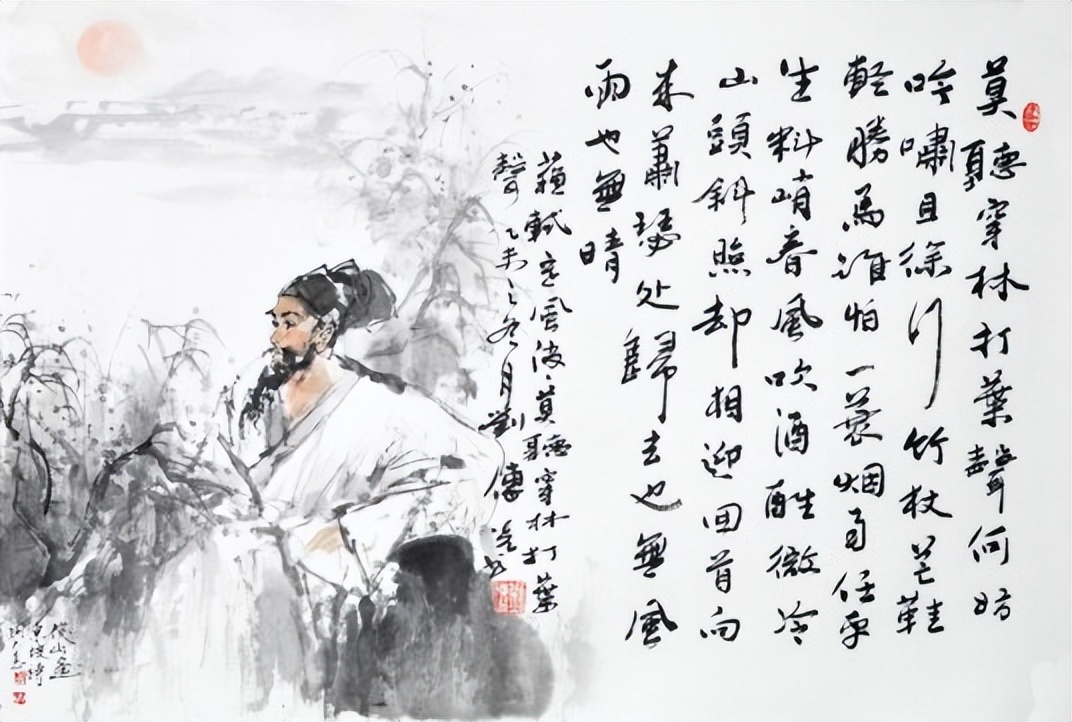 莫聽穿林打葉聲何妨
吟嘯且徐行竹杖芒鞋
輕勝馬誰怕一蓑烟雨任平
生料峭春風吹酒醒微冷
山頭斜照却相迎回首向
来蕭瑟处歸去也無風
雨也無晴
蘇軾定風波莫聽穿林打葉
聲乙未之冬月劉傳
山畫
東坡詩